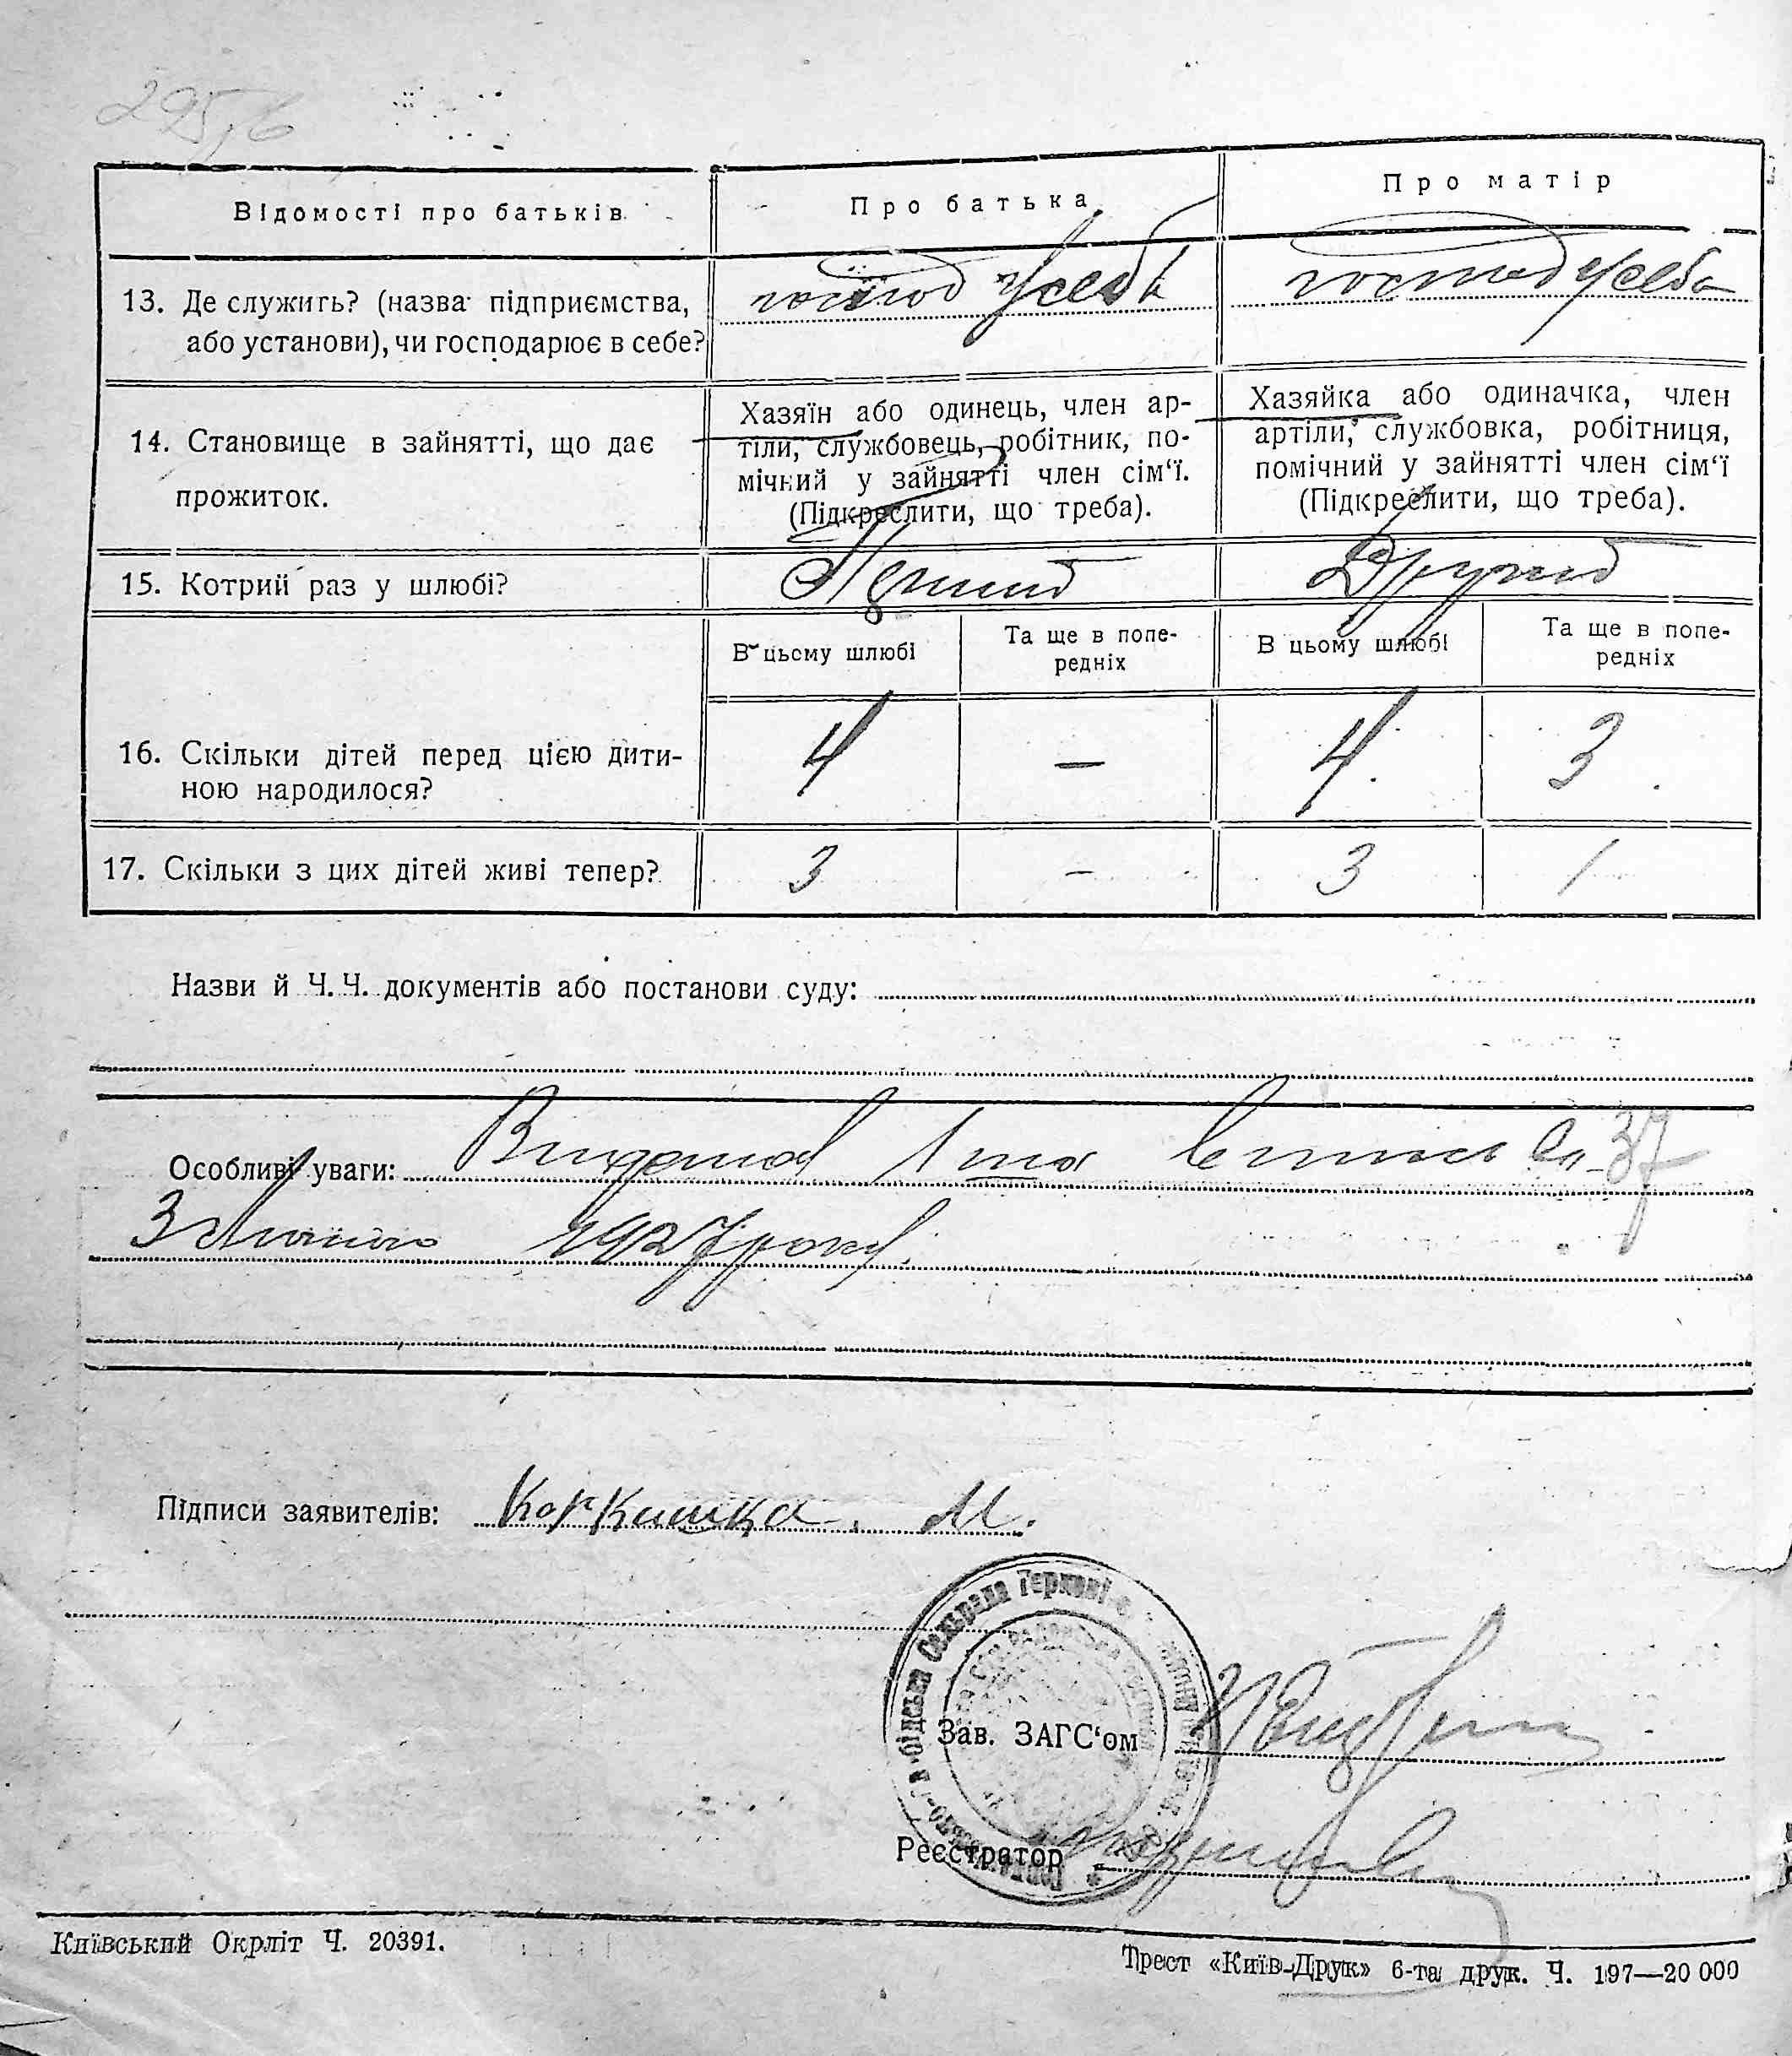 295,6
Відомості про батьків
Про батька
Про матір
13. Де служить? (назва підприємства, або установи), чи господарює в себе?
господ у себе
господ у себе
14. Становище в зайнятті, що дає прожиток.
Хазяїн або одинець, член ар-
тіли, службовець, робітник, по-
мічний у зайнятті член сім'ї.
(Підкреслити, що треба).
Хазяйка або одиначка, член
артіли, службовка, робітниця,
помічний у зайнятті член сім'ї
(Підкреслити, що треба).
15. Котрий раз у шлюбі?
Перший
Другий
В цьому шлюбі
Та ще в попе-
редніх
В цьому шлюбі
Та ще в попе-
редніх
16. Скільки дітей перед цією дити-
ною народилося?
4
—
4
3
17. Скільки з цих дітей живі тепер?
3
–
3
1
Назви й Ч. Ч. документів або постанови суду:
Особливі уваги: 37
3 Лютого 1927 року.
Підписи заявителів: М.
Зав. ЗАГС'ом
Реєстратор
Київський Окрліт Ч. 20391.
Трест «Київ-Друк» 6-та друк. Ч. 197—20 000